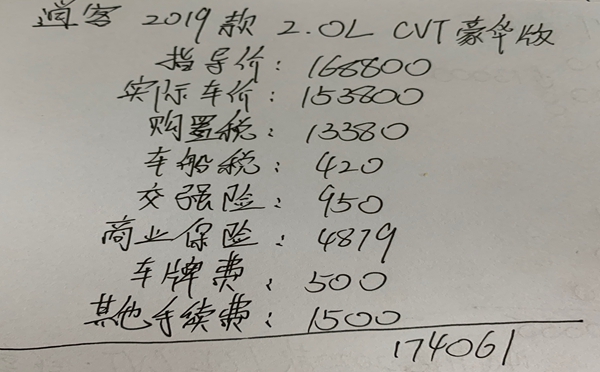 逍客 2019款 2.0L CVT豪华版
指导价: 168800
实际车价: 153800
购置税: 13380
车船税: 420
交强险: 950
商业保险: 4879
车牌费: 500
其他手续费: 1500
174061